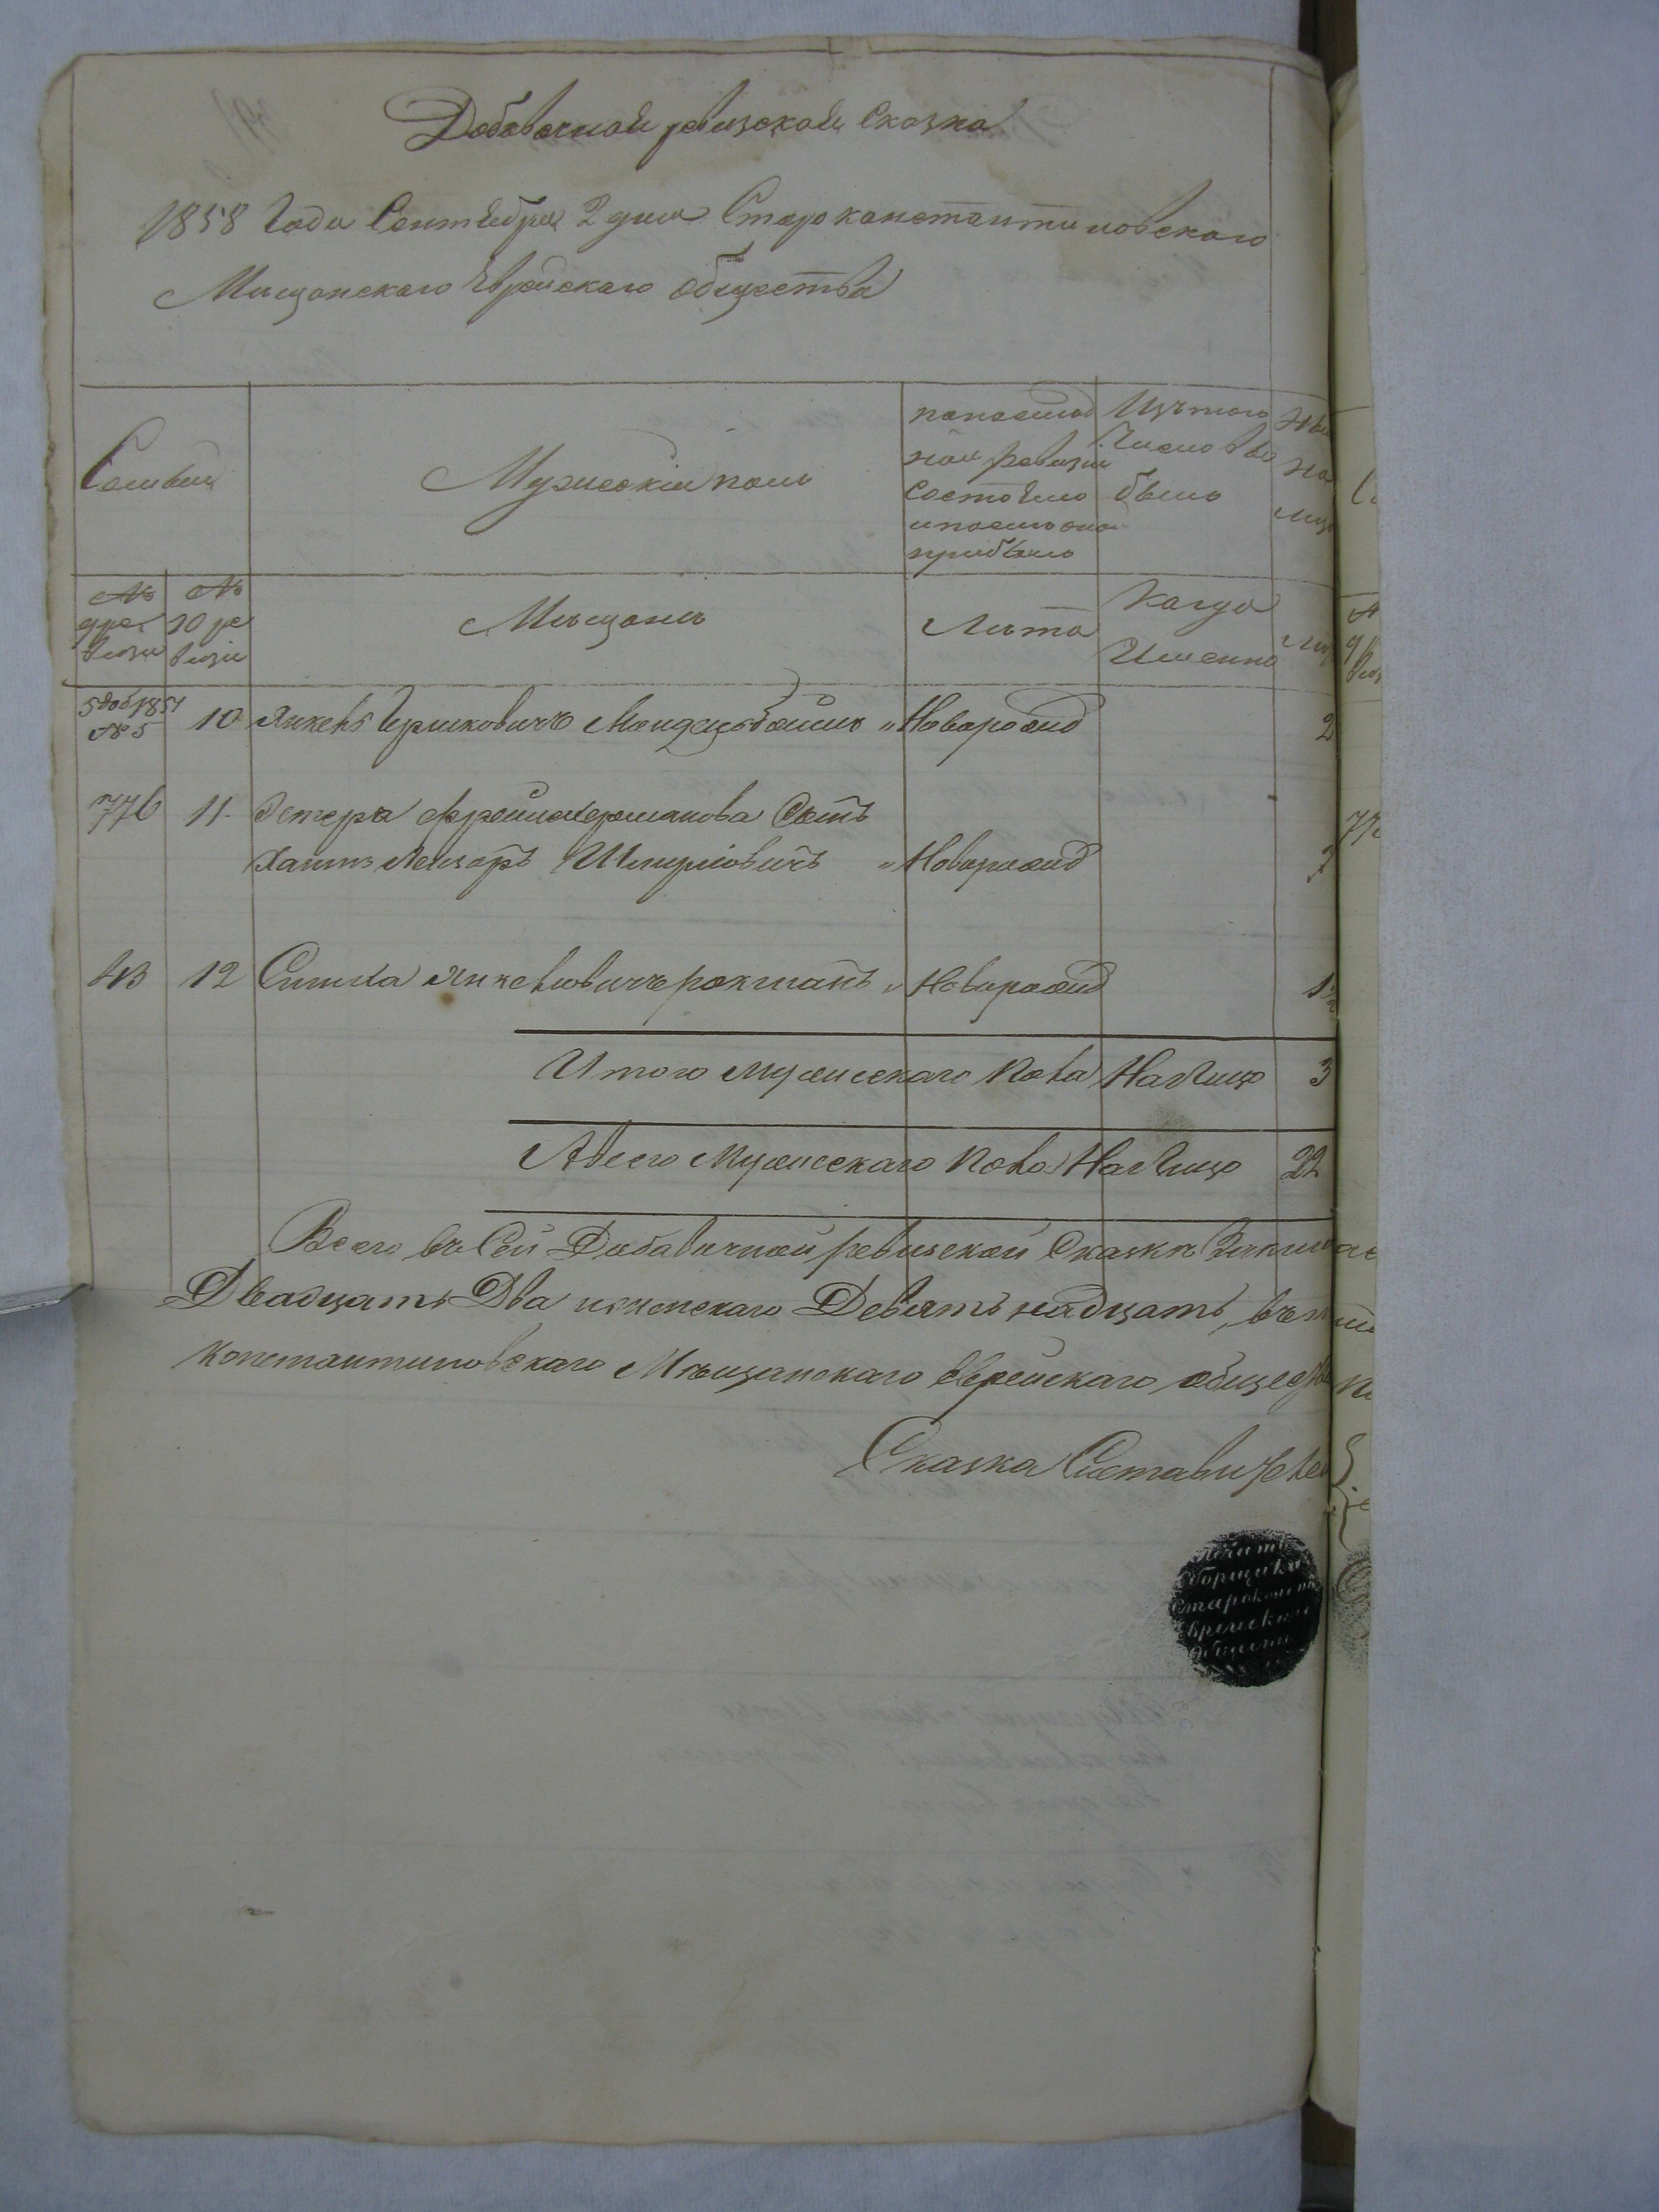 Добавочной ревизской Сказка
1858 Года Сентебря 2 дня Старо константиновского
Мещанского Еврейского общества
Семьи
Мужеский полъ
по послед
ной ревизии
Состояло
и после оной
прибыло
Изъ того
Число вы
было
Ны
на
лиц
№
дре
визи
№
10 ре
визи
Мещанъ
Лета
Когда
Именно
5 доб 1851
№ 5
10 Янкель Ицковичъ " Новорожд 2
776 11. Эстера Сынъ
Хаимъ Лейзоръ Шмулiовичъ " Новорожд
43 12 Симха Янкелiовичъ рохманъ " Новорожд
Итого мужескаго Пола На Лицо 3
А всего Мужескаго Пола На Лицо 22
Всего въ Сей Добавичной ревизской Сказки
Двадцать Два и женскаго Девятьнадцать, въ
Константиновскаго Мѣщанскаго Еврейскаго общес
Сказка Составичела
Печать
Сборщика
Староконст
Еврейскаго
Общест